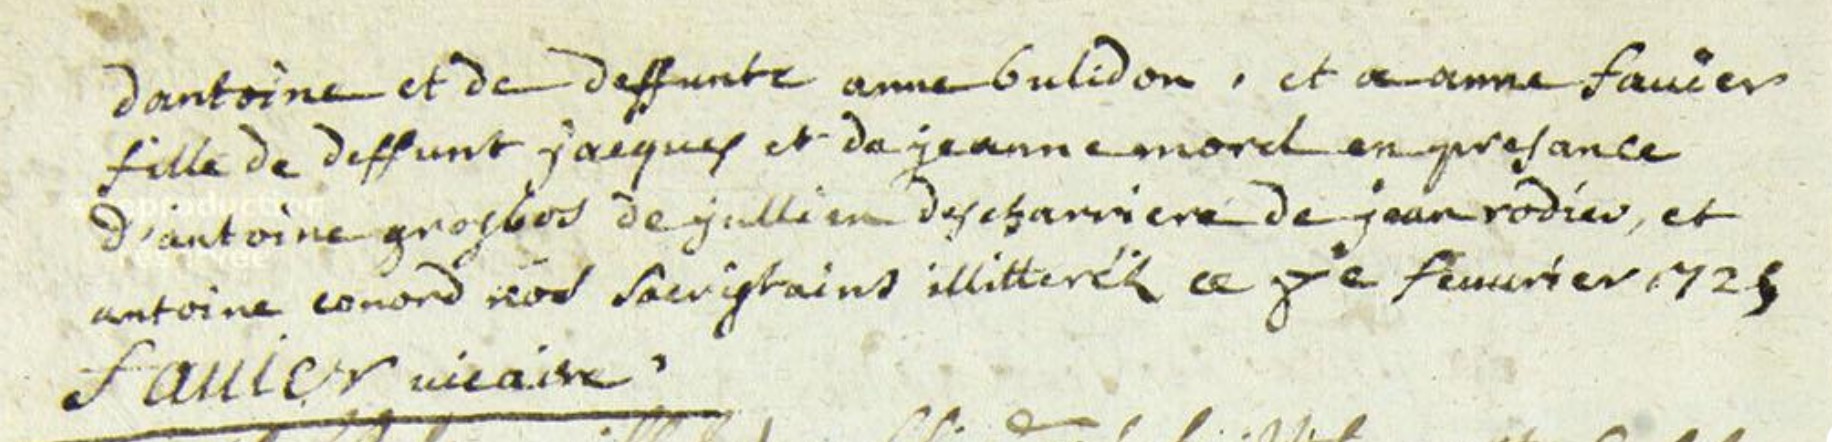 dantoine et de deffunte anne bulidon, et a anne fauïer
fille de deffunt jacques et de jeanne morel en presance
d'antoine grosbos de jullien descharriere de jean rodier, et
antoine conord nos sacristains illitteréz ce 7e feuurier 1725
fauier uicaire